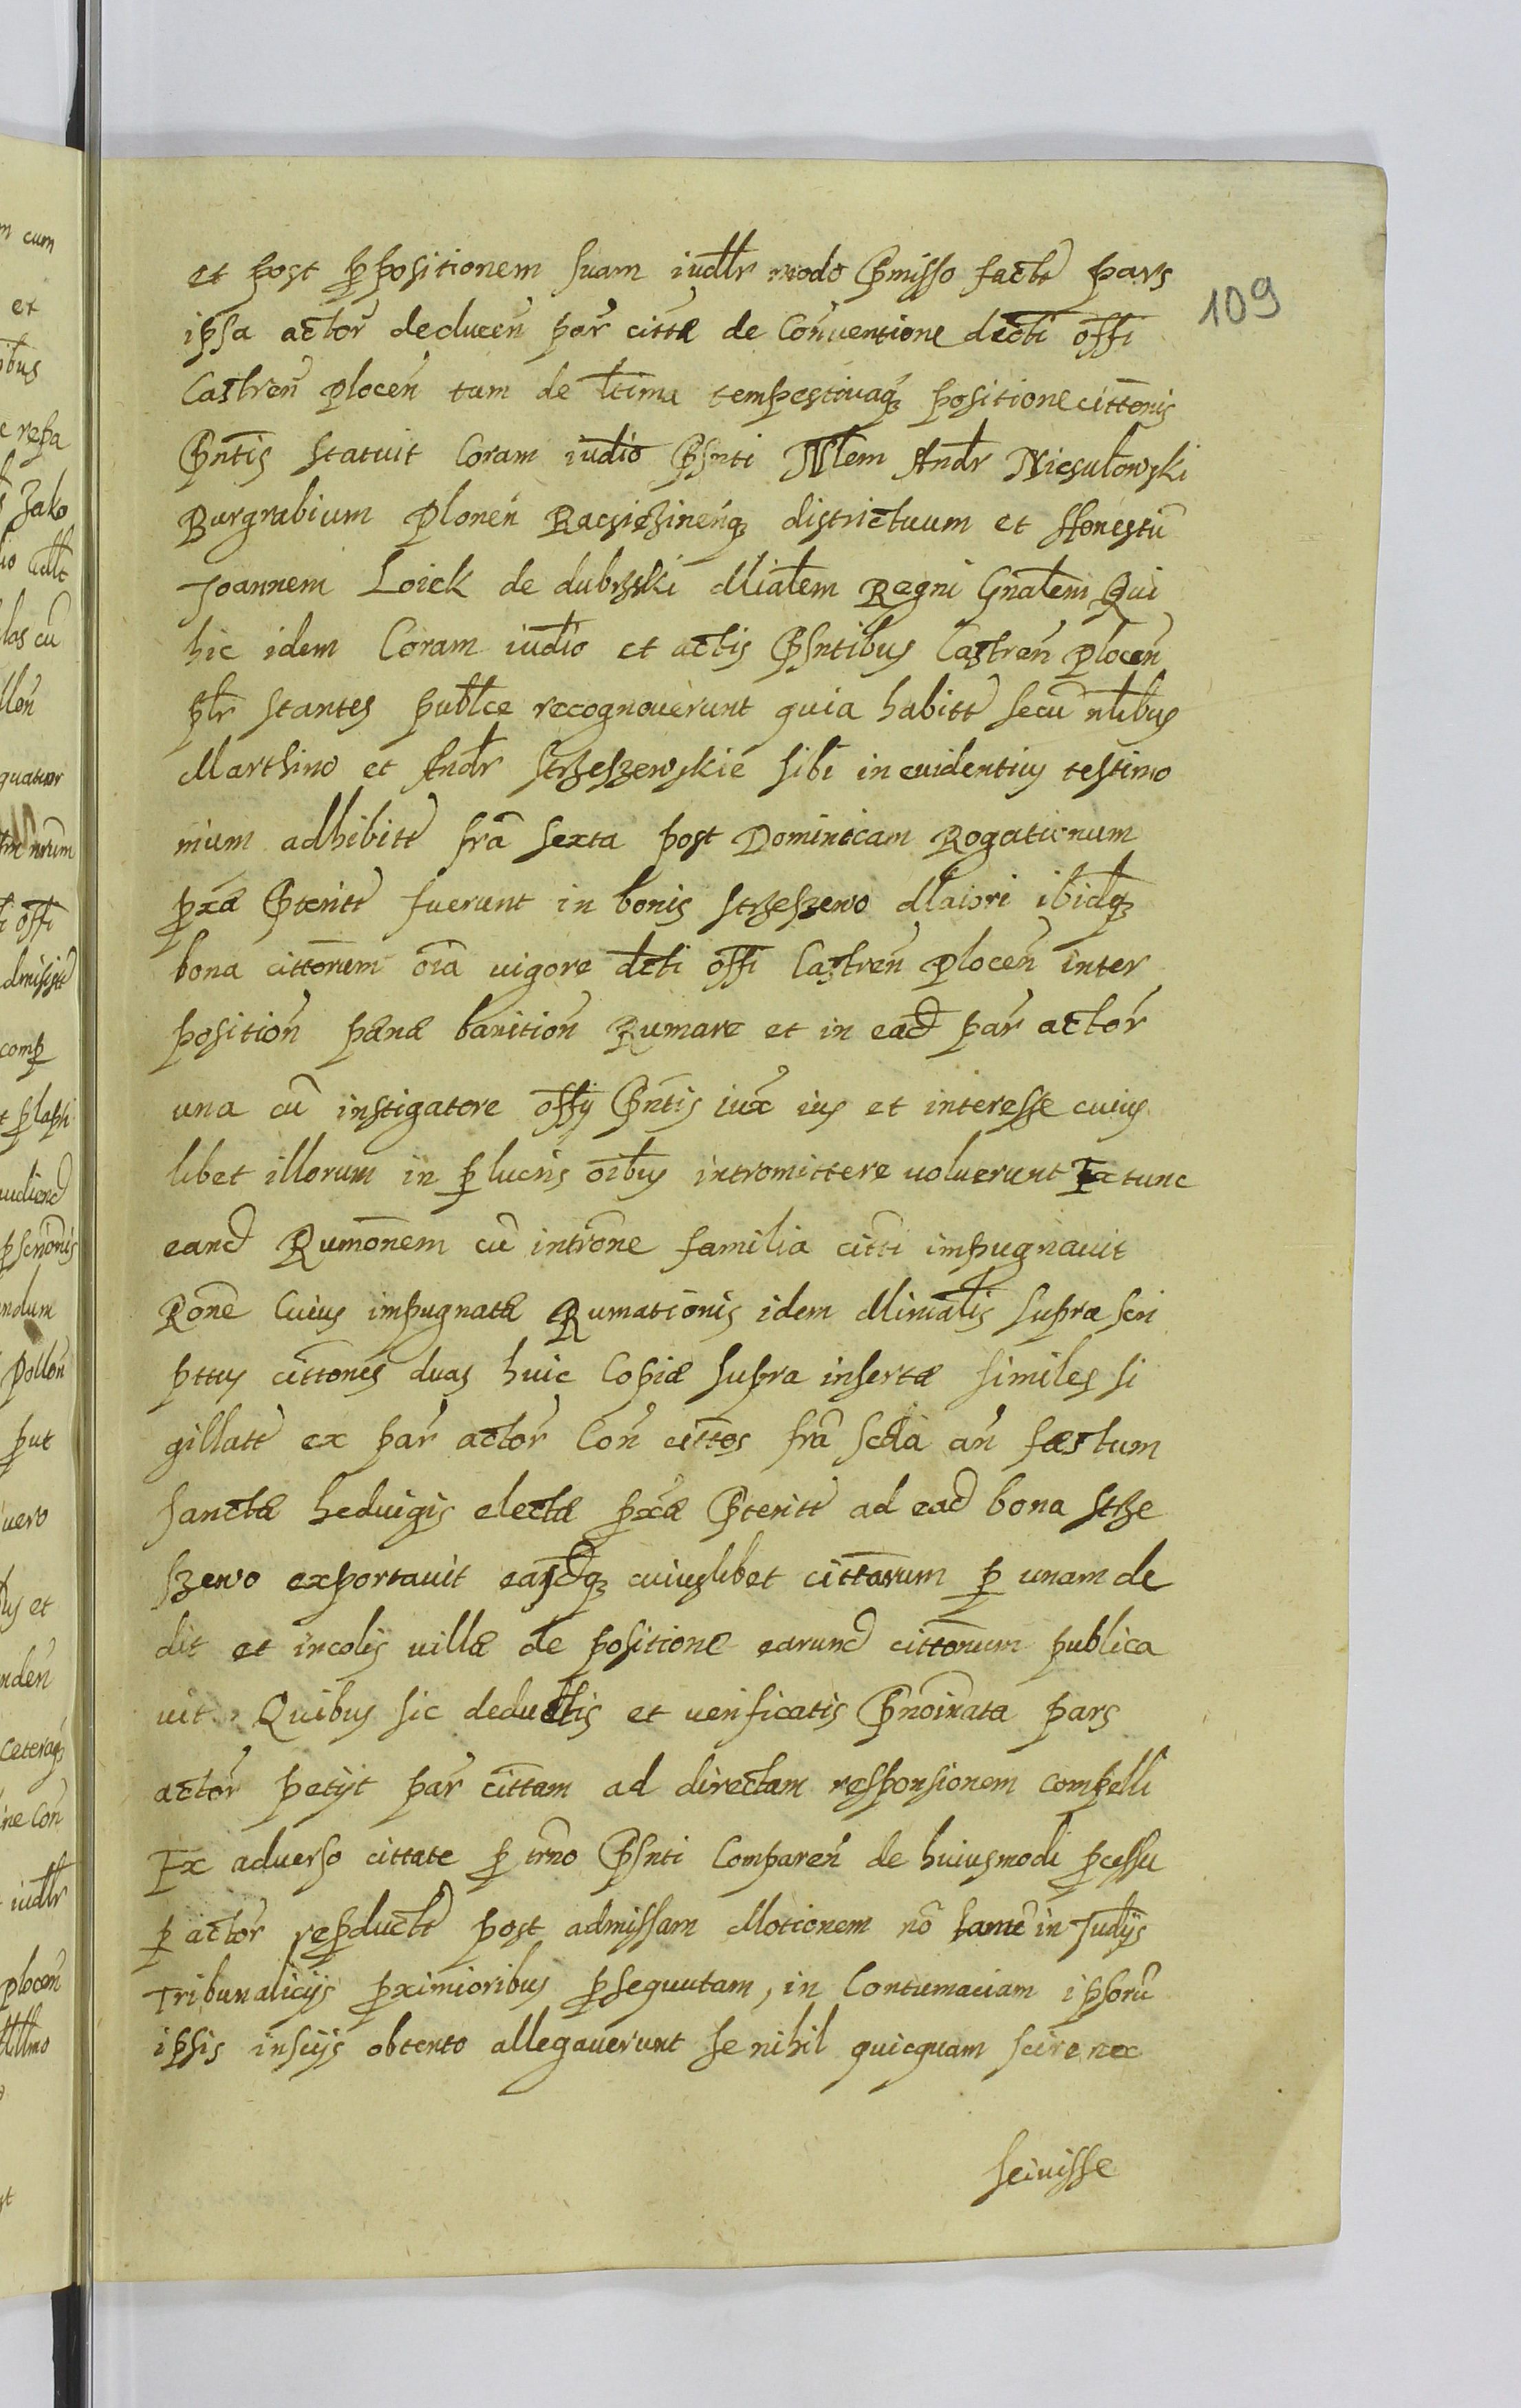 et post ꝓpositionem suam iudlr modo p̃misso factt̃ pars
109
ipsa actor̃ deducen̄ par̃ cittæ de Conventione decti offi
Castren̄ Plocen̄ tam de ltima tempestivaqꝫ positione citt̄onis
p̃ntis statuit Coram iudio p̃snti Nlem Andr Niesulowski
Burgrabium Plonen̄ Raczieziinen̄qꝫ districtuum et Honestū
Joannem Loick de dubrzki Mialem Regni Gnalem Qui
hic idem Coram iudio et actis p̃sntibus Castren̄ Plocen̄
plr stantes publce recognoverunt quia habitt̃ secū nlibus
Marthino et Andr Strzeszewskie sibi in evidentius testimo
nium adhibitt̃ frã sexta post Dominicam Rogationum
ꝓxæ p̃teritt̃ fuerunt in bonis Strzeszewo Maiori ibidqꝫ
bona citt̄onem oīa vigore dcti offi Castren̄ Plocen̄ inter
position̄ pænæ banition̄ Rumare et in ead par̃ actor̃
una cū instigatore offy p̃ntis iux̃ ius et interesse cuius
libet illorum in ꝓlucris oībus intromittere voluerunt Extunc
eand Rum̄onem cū intr̄one familia citti impugnavit
R̄one Cuius impugnatæ Rumationis idem Minialis supra scri
pttus citt̄ones duas huic Copiæ supra insertæ similes si
gillatt̃ ex par̃ actor̃ Con̄ cittos frã scda an̄ fæstum
Sanctæ hedvigis electæ ꝓxæ p̃teritt̃ ad ead bona Strze
szewo exportavit easdqꝫ cuiuslibet cittarum ꝑ unam de
dit et incolis villæ de positione earund citt̄onum publica
vit. Quibus sic deductis et verificatis p̃noīnata pars
actor̃ petijt par̃ cittam ad directam responsionem compelli
Ex adverso cittate ꝑ trno p̃snti Comparen̄ de huiusmodi ꝓcessu
ꝑ actor̃ reꝓductt̃ post admissam Motionem nō tamē in Judijs
Tribunalicijs ꝓximioribus ꝓsequutam, in Contumaciam ipsorū
ipsis inscijs obtento allegaverunt se nihil quicquam scire nec
scivisse